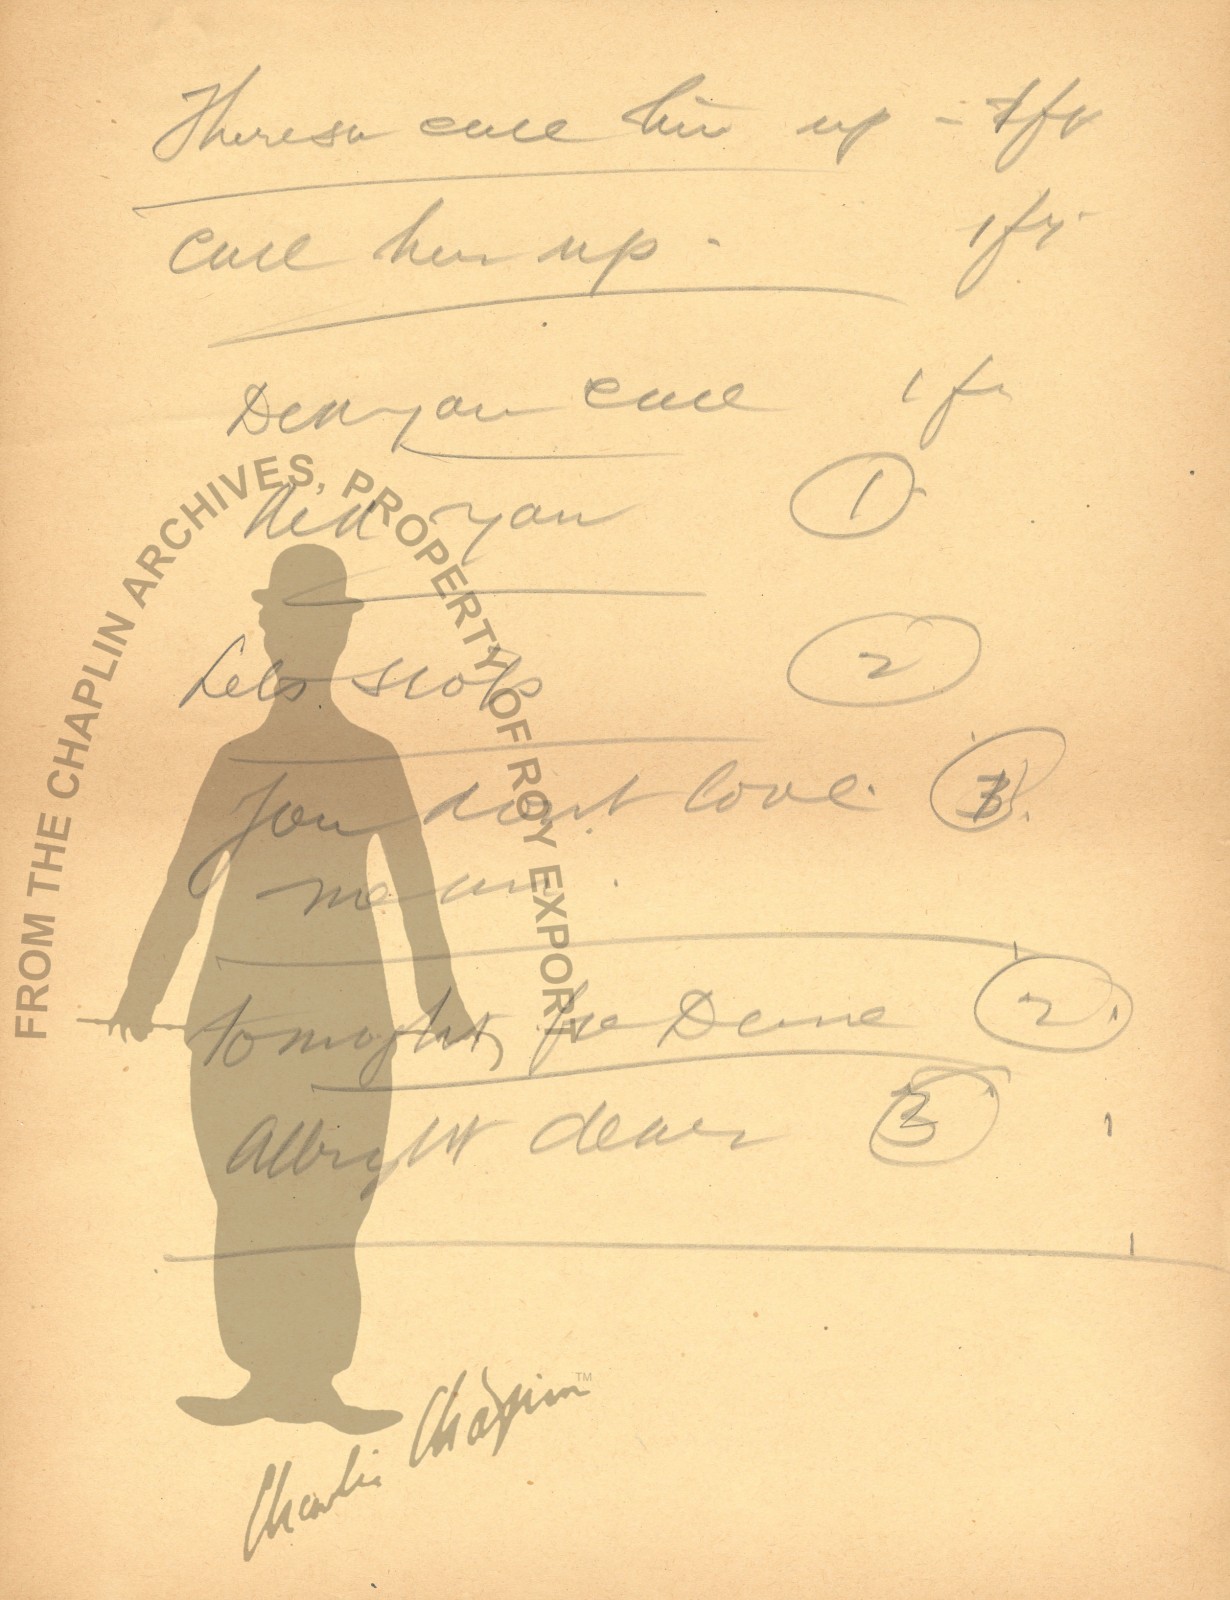 Theresa call him up - 1 fr
call him up. 1 fr.
Did you call 1 fr
Did you 1
Lets stop 2
You dont love 3
me
tonight, 2
Allright dear 3
FROM THE CHAPLIN ARCHIVES, PROPERTY OF ROY EXPORT
Charlie Chaplin™